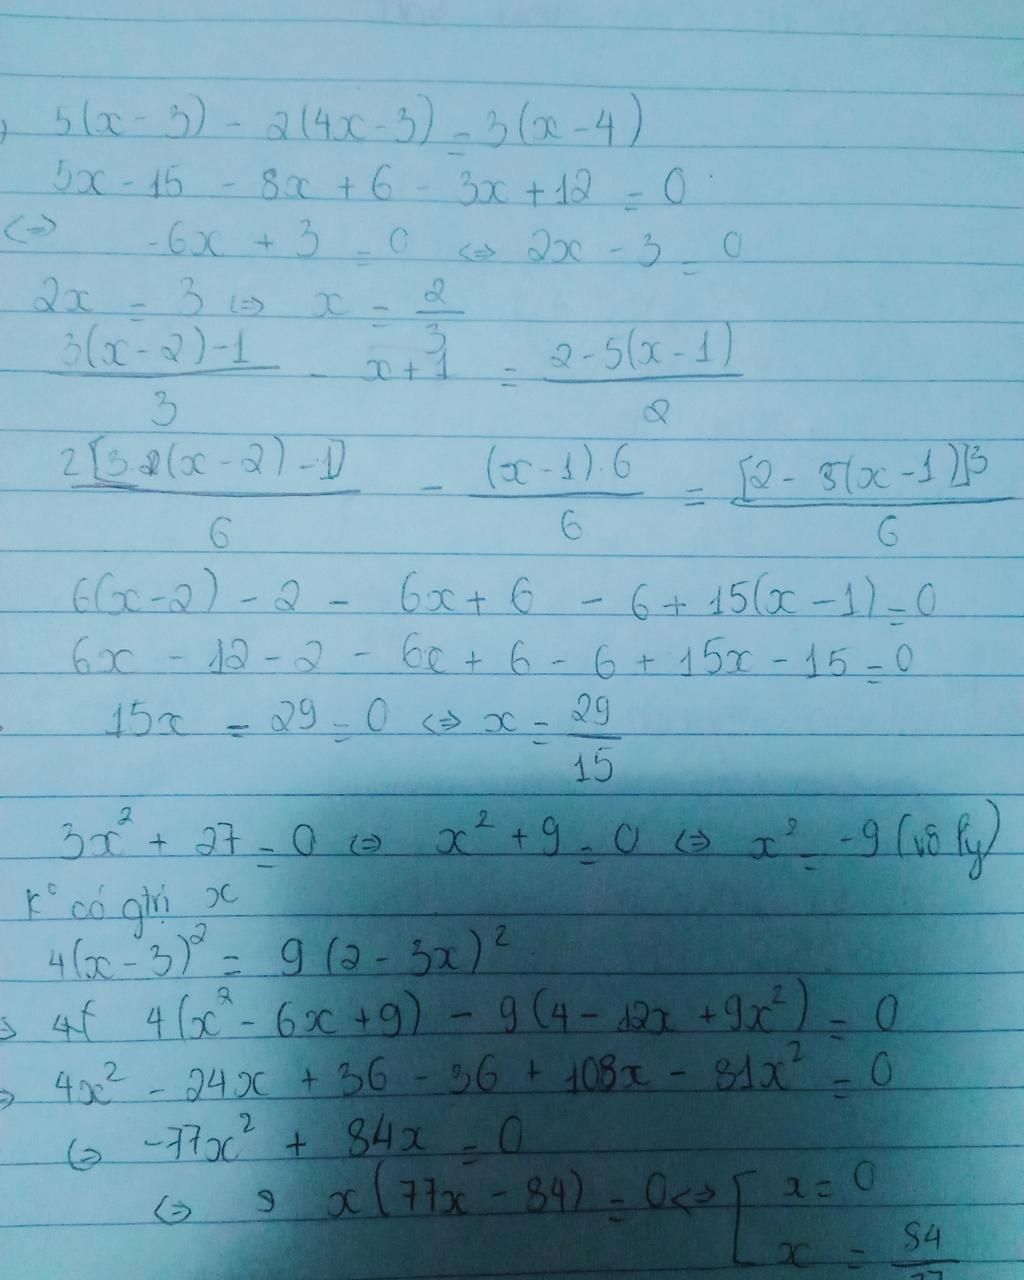 5(x - 3) - 2(4x - 3) = 3(x - 4)
5x - 15 - 8x + 6 - 3x + 12 = 0
<=> -6x + 3 = 0 <=> 2x - 3 = 0
2x = 3 <=> x = 2/3
(3(x - 2) - 1)/3 - x + 1 = (2 - 5(x - 1))/2
2[3.2(x - 2) - 1]/6 - (x - 1).6/6 = [2 - 5(x - 1)]3/6
6(x - 2) - 2 - 6x + 6 - 6 + 15(x - 1) = 0
6x - 12 - 2 - 6x + 6 - 6 + 15x - 15 = 0
15x = 29 = 0 <=> x = 29/15
3x² + 27 = 0 <=> x² + 9 = 0 <=> x² = -9 (vô lý)
K° có gtrị x
4(x - 3)² = 9(2 - 3x)²
4(x² - 6x + 9) - 9(4 - 12x + 9x²) = 0
4x² - 24x + 36 - 36 + 108x - 81x² = 0
<=> -77x² + 84x = 0
<=> x(77x - 84) = 0 <=> [ x = 0
x = 84